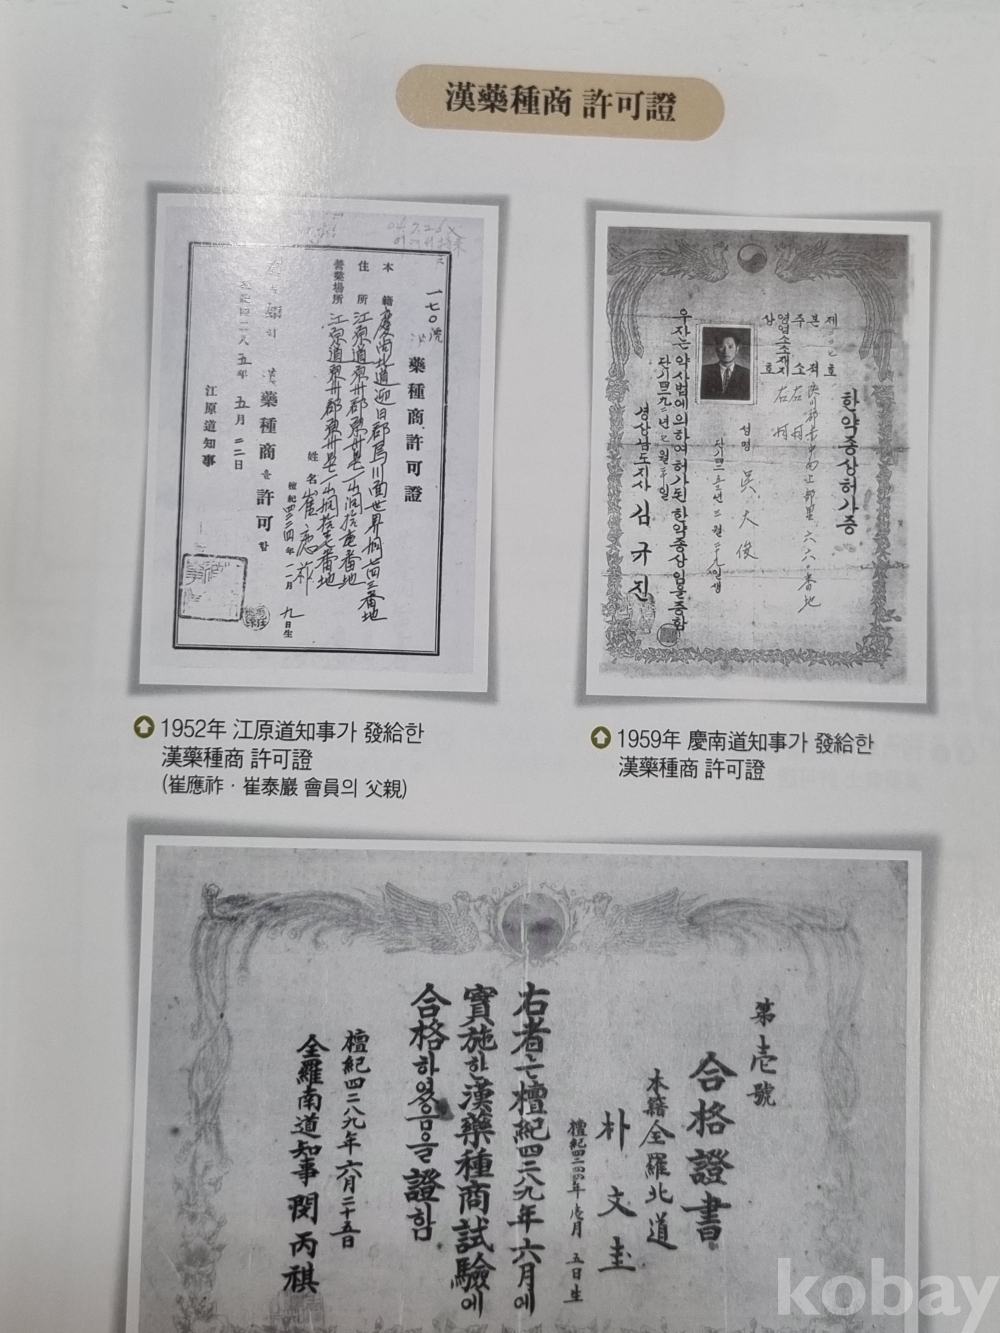 漢藥種商 許可證
一七〇號
漢藥種商許可證
本籍 慶尚北道迎日郡
住所 江原道
營業場所 江原道
姓名 崔應祚
檀紀四二四四年 一一月 九日生
藥種商을 許可함
五年 五月 二二日
江原道知事
1952年 江原道知事가 發給한
漢藥種商 許可證
(崔應祚 · 崔泰巖 會員의 父親)
한약종상허가증
제 호
본적
주소 左仝
영업소소재지 左仝
상호
성명 吳大俊
우자는 약사법에 의하여 허가된 한약종상임을 증함
경상남도지사 김규진
1959年 慶南道知事가 發給한
漢藥種商 許可證
第壱號
合格證書
本籍 全羅北道
朴文圭
五日生
右者는 檀紀四二八九年六月에
實施한 漢藥種商試驗에
合格하였음을 證함
檀紀四二八九年六月二十五日
全羅南道知事 閔丙祺
kobay